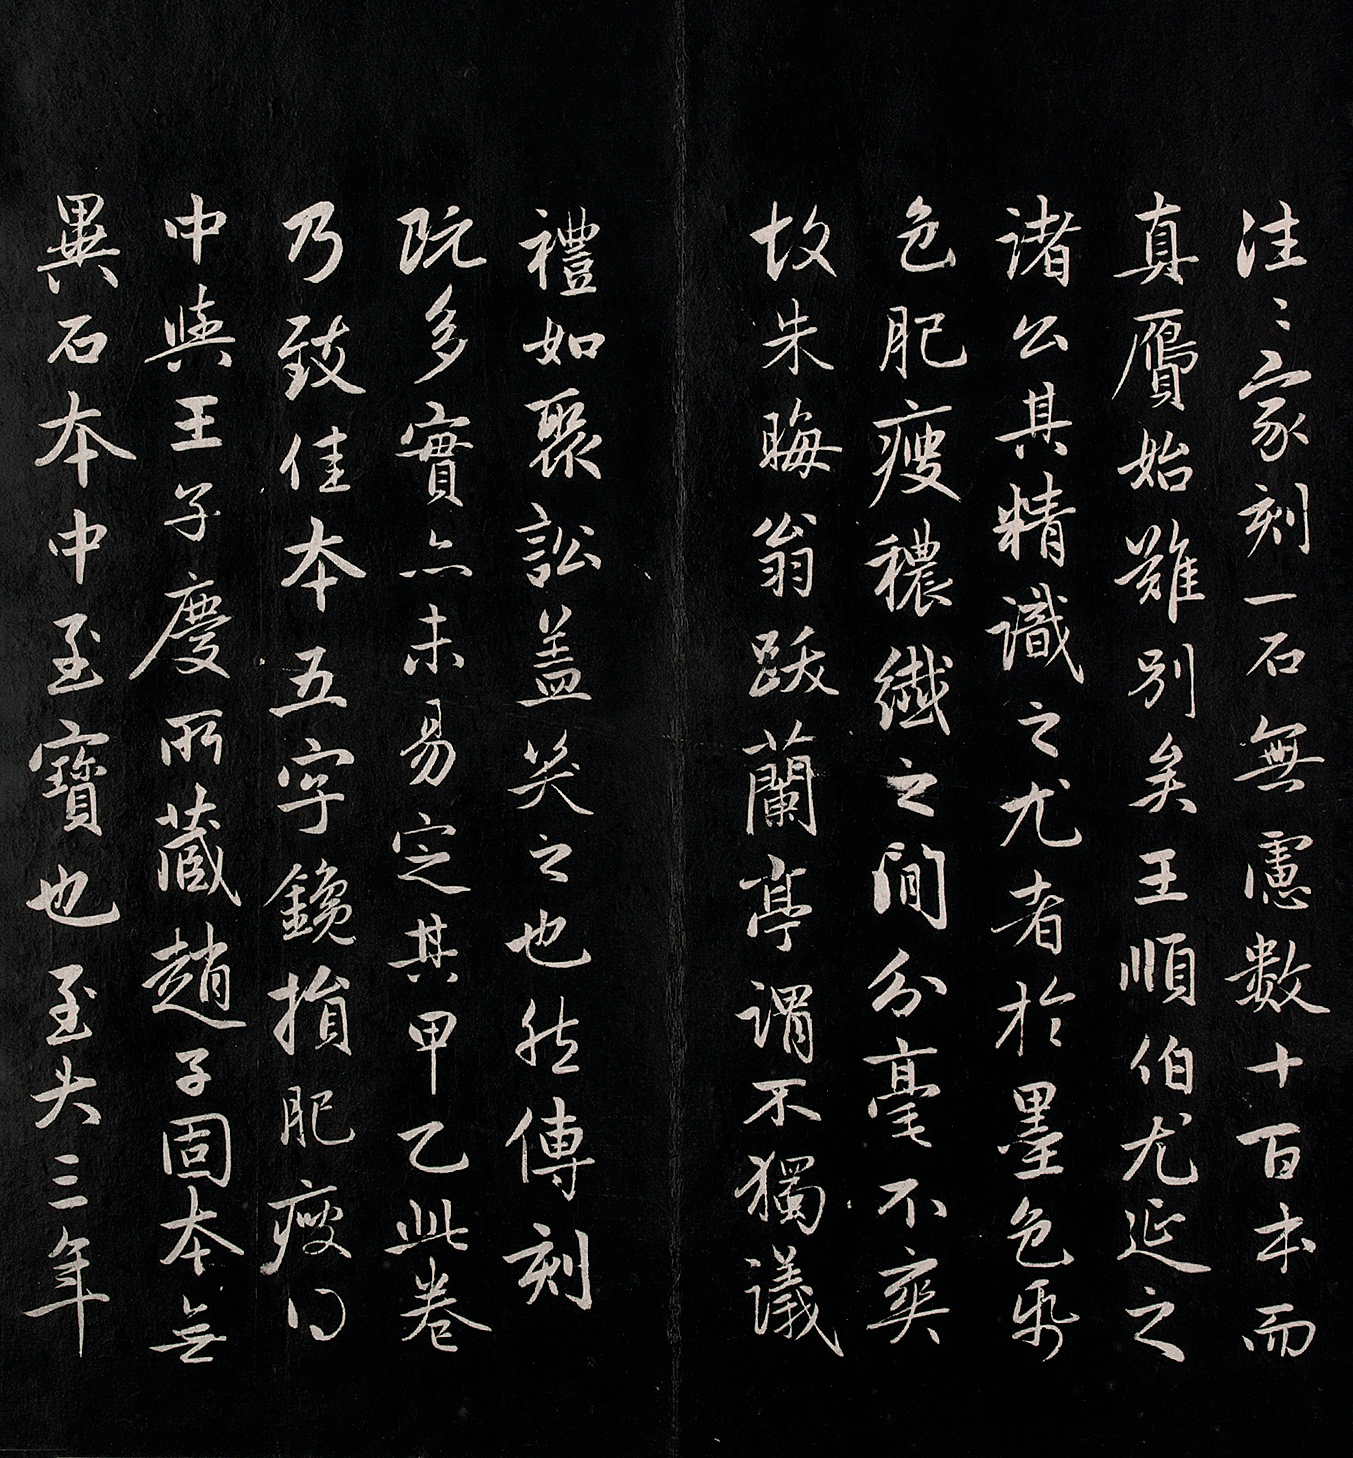 往〻家刻一石無慮數十百本而
真贗始難別矣王順伯尤延之
諸公其精識之尤者於墨色𠃔
色肥瘦穠纖之間分毫不爽
故朱晦翁跋蘭亭謂不獨議
禮如聚訟盖笑之也然傳刻
既多實亦未易定其甲乙此卷
乃致佳本五字鑱損肥瘦得
中與王子慶所藏趙子固本無
異石本中至寶也至大三年